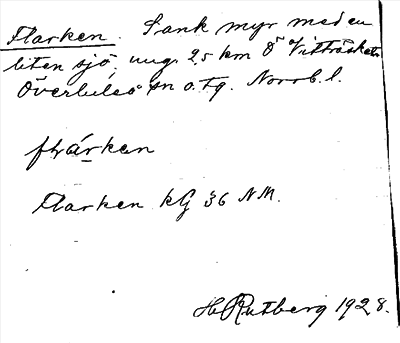 Flarken. Sank myr med en
liten sjö, ungr 2,5 km Ö om Vitträsket.
Överluleå sn o. tg. Norrb. l.
flárken
Flarken kG 36 NM.
H Rutberg 1928.